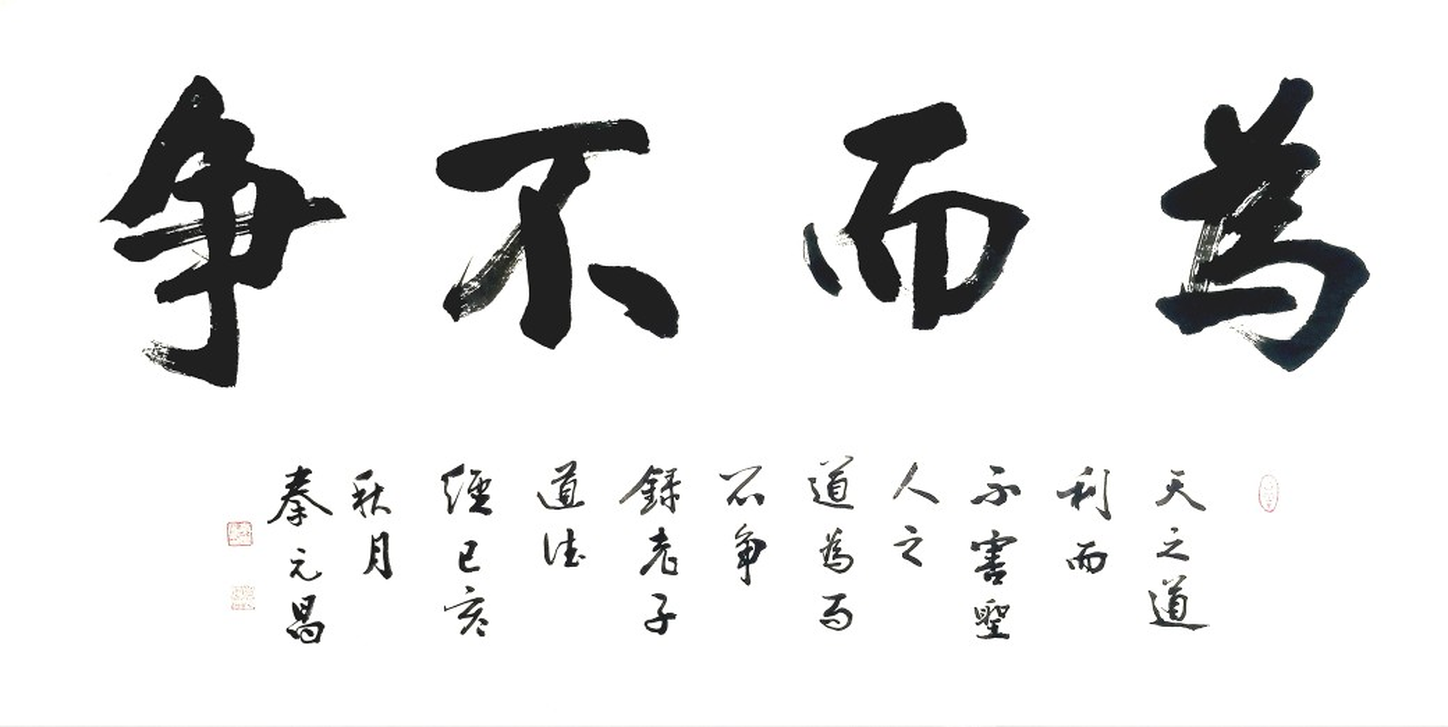 為而不争
天之道
利而
不害聖
人之
道為而
不争
録老子
道德
經己亥
秋月
秦元昌